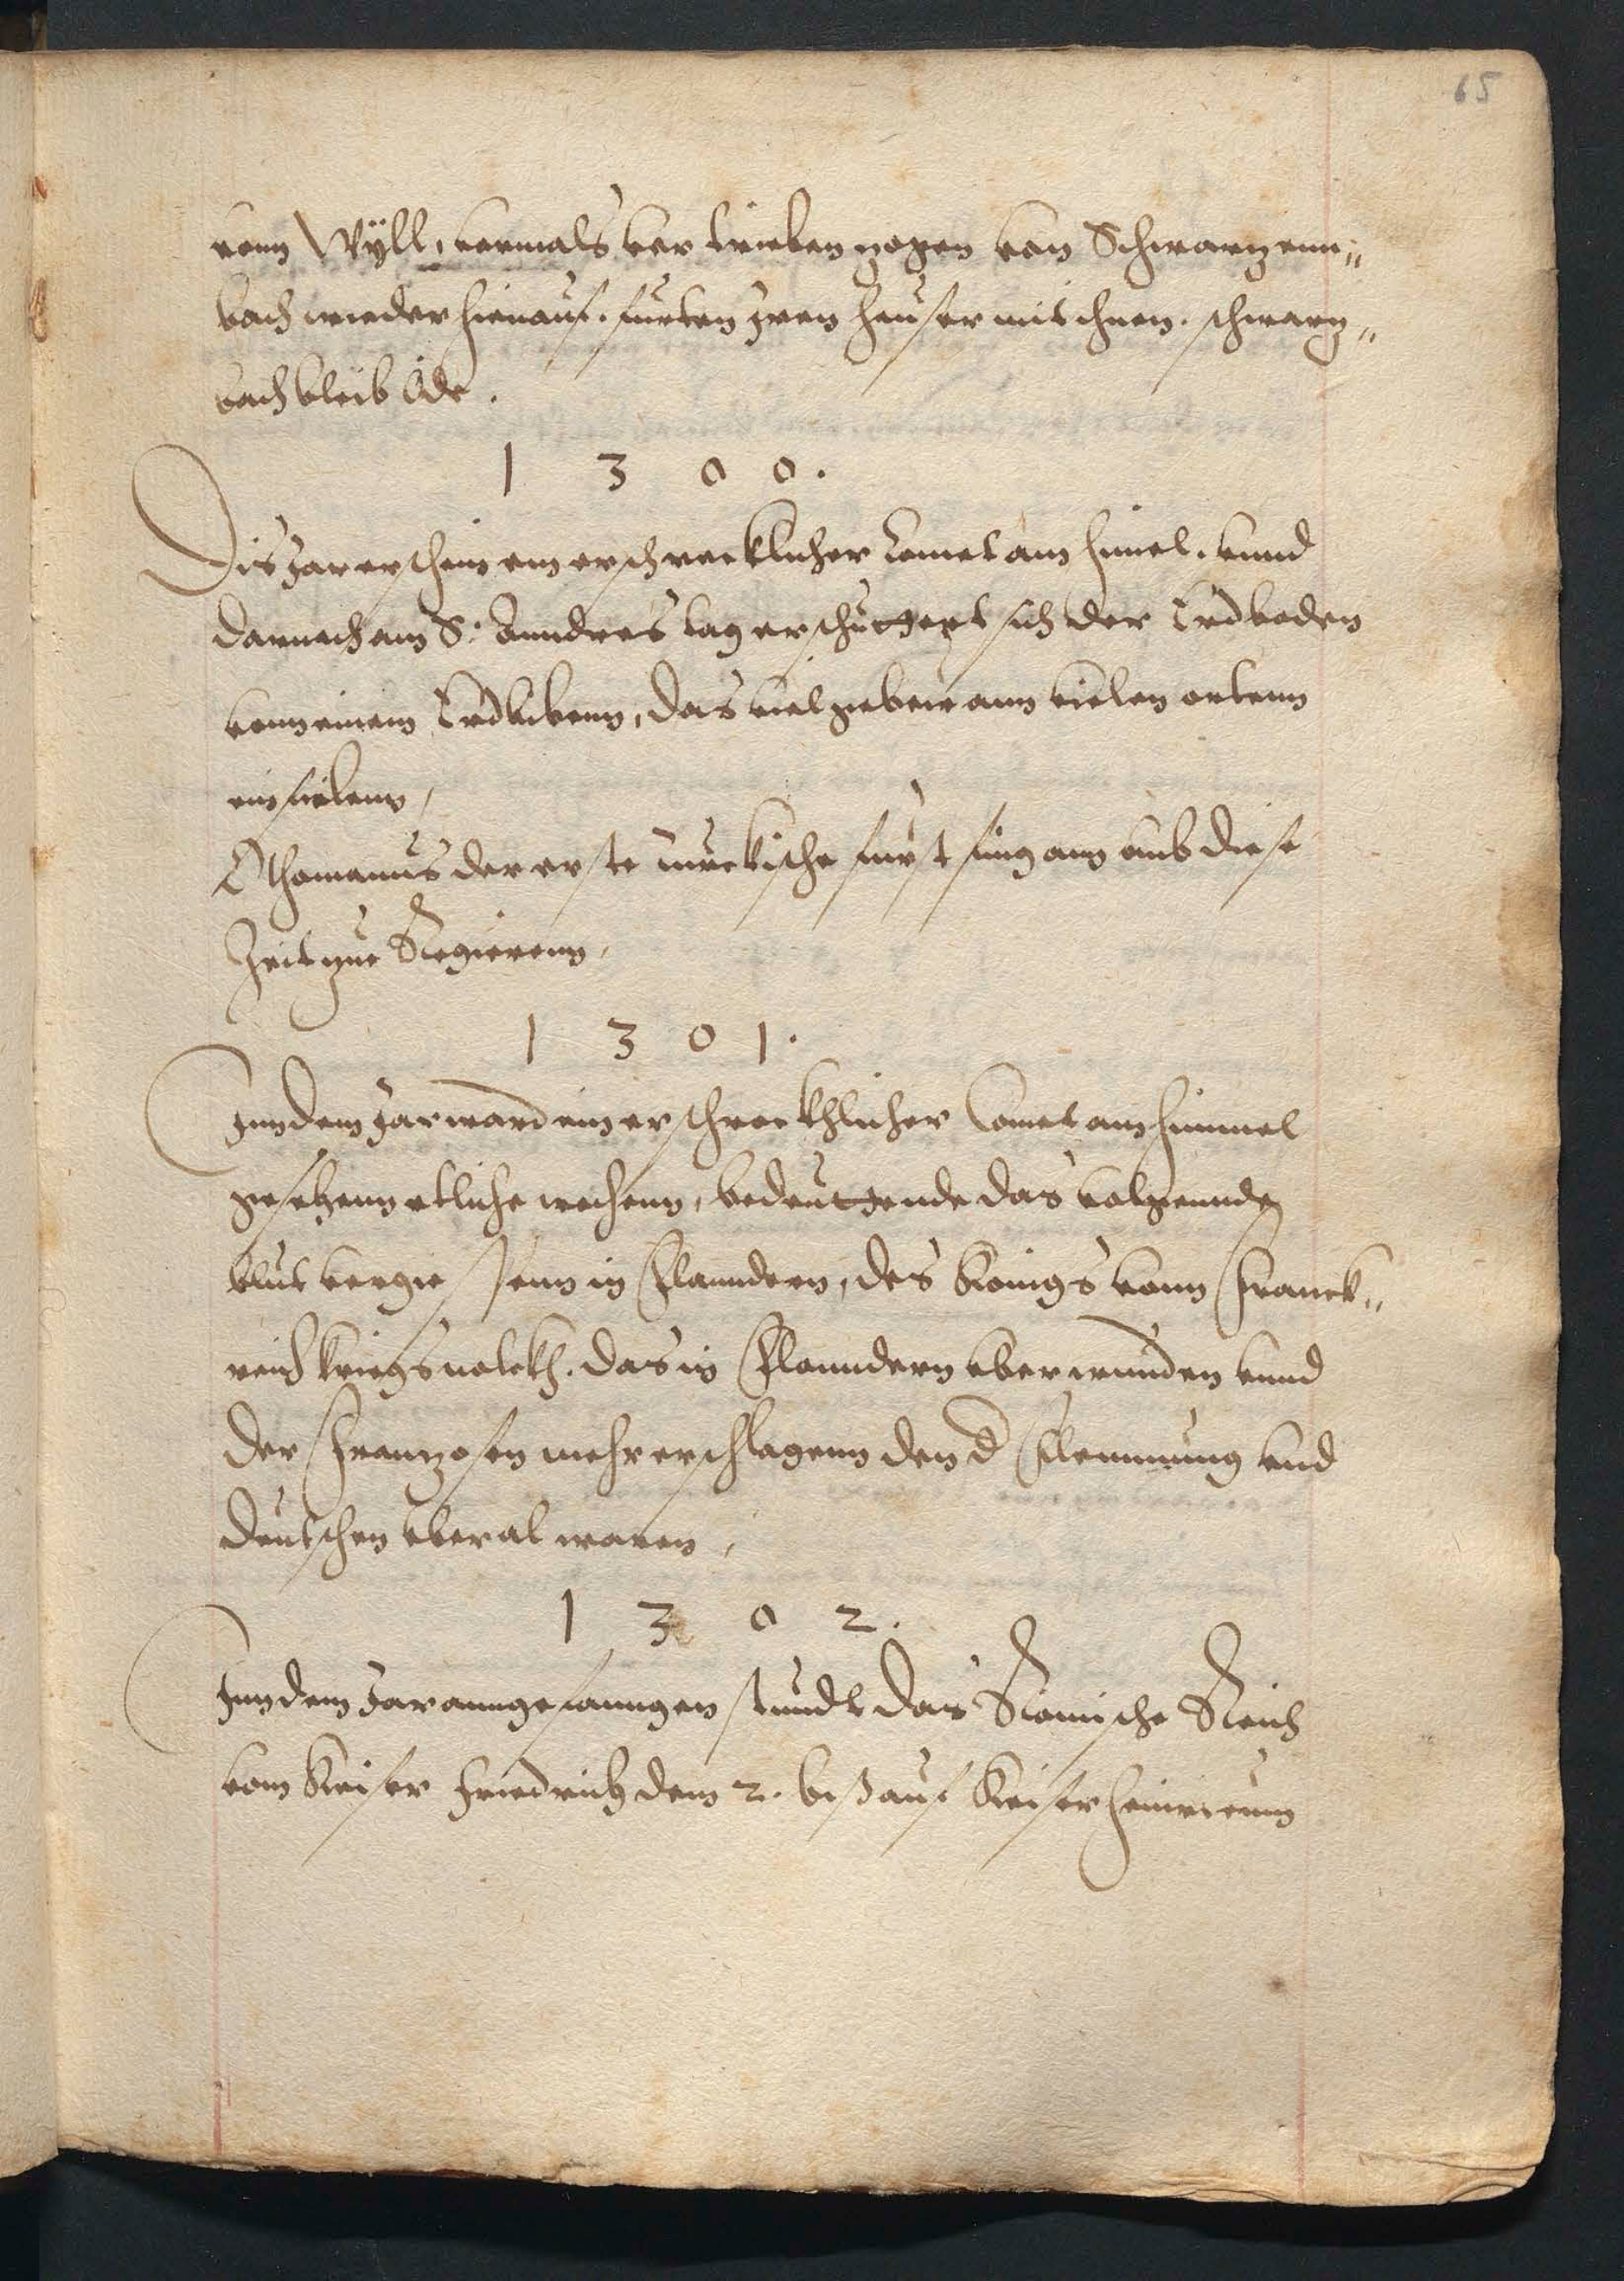 65
renn Wÿll, vormals vertrieben zogen von Schwarzenn„
bach wieder hienauf. furten Iren heuser mit ihnen. schwarz„
bach bleib öde.
1 3 0 0.
Dis Jar erschein ein erschrecklicher Comet am himel. vnnd
darnach am S: Anndres tag erschuttert sich der Erdboden
vonn einem Erdbibenn, das viel gebew ann vielen ortenn
einfielenn,
Othomanus der erste turckische furst fing ann vmb diese
Zeit zue Regierenn,
1 3 0 1.
Inn dem Jar ward ein erschreckhlicher Comet am himmel
gesehenn etliche wochenn, bedeuttende das volgennde
blut vergiessenn in Flanndern, des Königs vonn Franck„
reich kriegsvolckh. das in Flanndern vberwunden vnnd
der Franzosen mehr erschlagenn den d Flemmung vnd
Deutschen vberal waren,
1 3 0 2.
Inn dem Jar anngefanngen stundt das Römische Reich
vom Keiser Friedrich dem 2. biß auf Keiser Heinricum